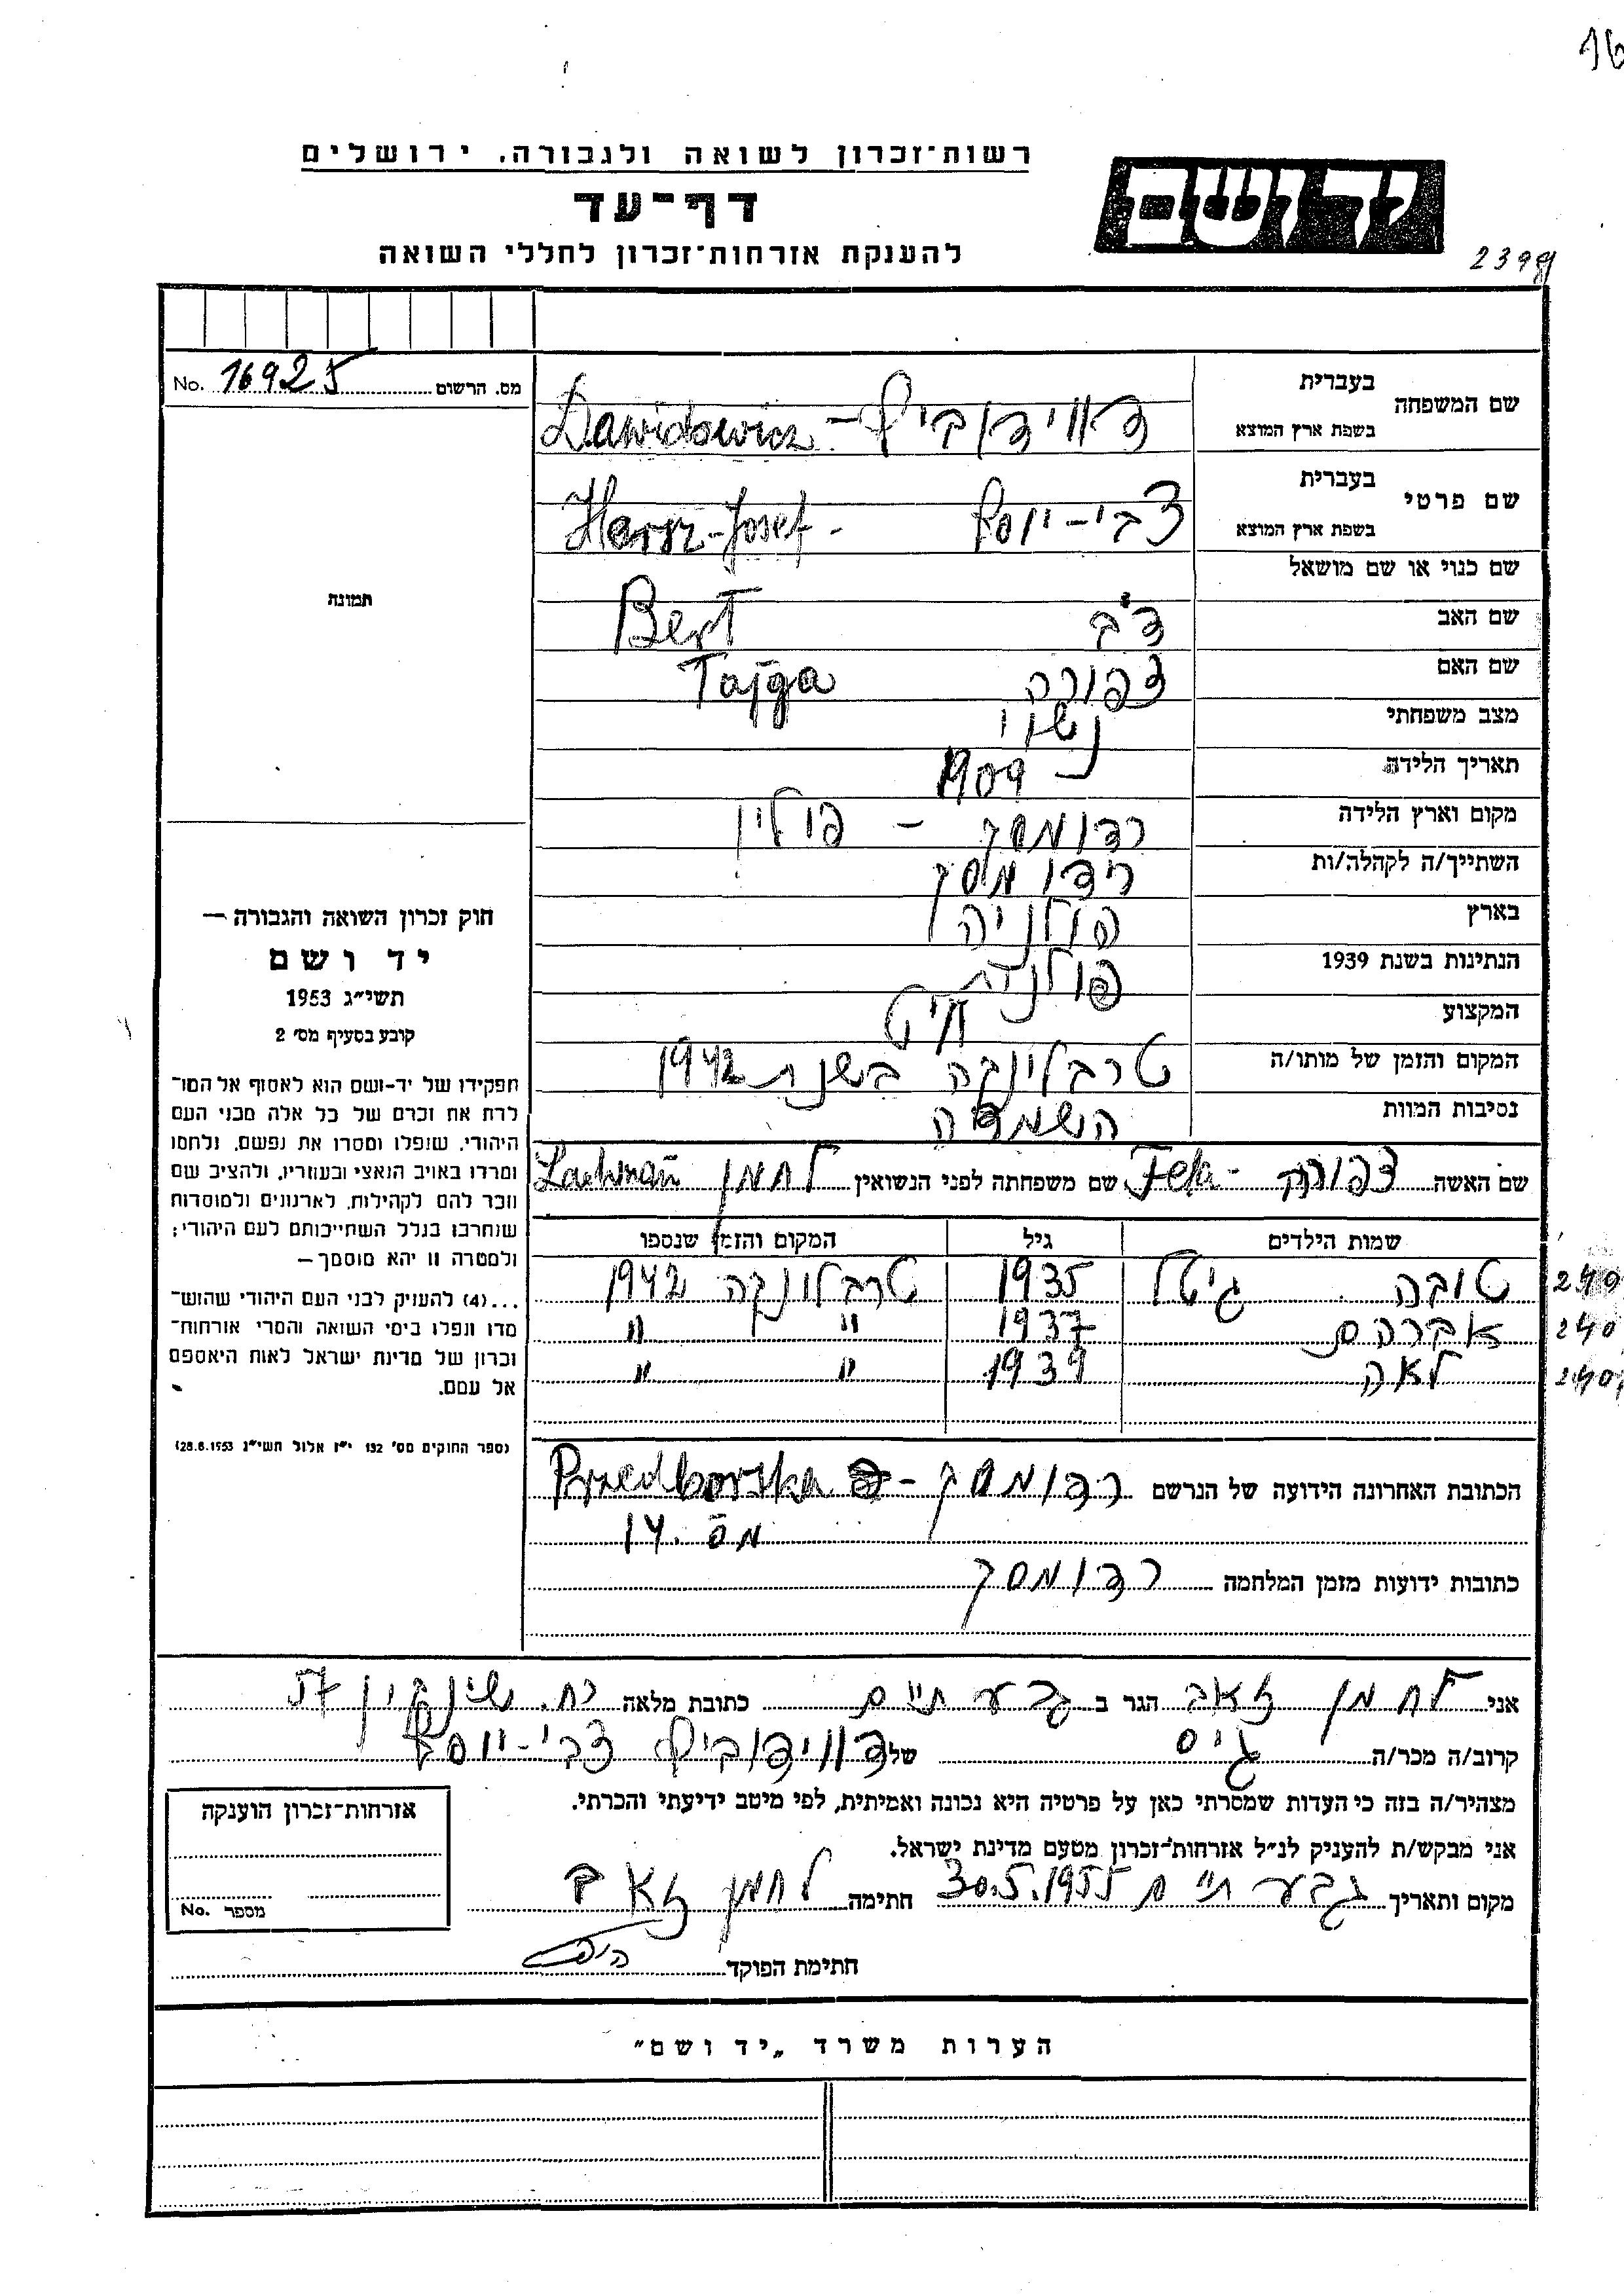 16
רשות־זכרון לשואה ולגבורה. ירושלים
יד ושם
דף־עד
להענקת אזרחות־זכרון לחללי השואה
2399
No. 16925 מס. הרשום
שם המשפחה בעברית בשפת ארץ המוצא דווידוביץ - Dawidowicz
שם פרטי בעברית בשפת ארץ המוצא צבי-יוסף - Hersz-Josef
שם כנוי או שם מושאל
שם האב דב Bert
שם האם צפורה Tajga
מצב משפחתי נשוי
תאריך הלידה 1909
מקום וארץ הלידה רדומסק - פולין
השתייך/ה לקהלה/ות רדומסק
בארץ פולניה
הנתינות בשנת 1939 פולנית
המקצוע חיט
המקום והזמן של מותו/ה טרבלינקה בשנת 1942
נסיבות המוות השמדה
שם האשה צפורה - Fela שם משפחתה לפני הנשואין לחמן Lachman
שמות הילדים גיל המקום והזמן שנספו
טובה גיטל 1935 טרבלינקה 1942
אברהם 1937 " "
לאה 1939 " "
הכתובת האחרונה הידועה של הנרשם רדומסק - Przedborska
מס. 14
כתובות ידועות מזמן המלחמה רדומסק
תמונה
חוק זכרון השואה והגבורה —
יד ושם
תשי״ג 1953
קובע בסעיף מס׳ 2
תפקידו של יד-ושם הוא לאסוף אל המו־
לדת את זכרם של כל אלה מבני העם
היהודי, שנפלו ומסרו את נפשם, נלחמו
ומרדו באויב הנאצי ובעוזריו, ולהציב שם
וזכר להם לקהילות, לארגונים ולמוסדות
שנחרבו בגלל השתייכותם לעם היהודי;
ולמטרה זו יהא מוסמך —
...(4) להעניק לבני העם היהודי שהוש־
מדו ונפלו בימי השואה והמרי אזרחות־
זכרון של מדינת ישראל לאות היאספם
אל עמם.
(ספר החוקים מס׳ 132 י״ז אלול תשי״ג 28.8.1953)
אני לחמן זאב הגר ב גבעתיים כתובת מלאה רח. שינקין
קרוב/ה מכר/ה גיס של דווידוביץ צבי-יוסף
מצהיר/ה בזה כי העדות שמסרתי כאן על פרטיה היא נכונה ואמיתית, לפי מיטב ידיעתי והכרתי.
אני מבקש/ת להעניק לנ״ל אזרחות־זכרון מטעם מדינת ישראל.
מקום ותאריך גבעתיים 30.5.1955 חתימה לחמן זאב
חתימת הפוקד
אזרחות־זכרון הוענקה
No. מספר
הערות משרד „יד ושם״